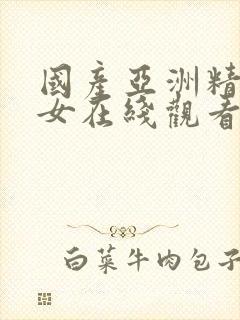 國產亞洲精
女在綫觀看
白菜牛肉包子